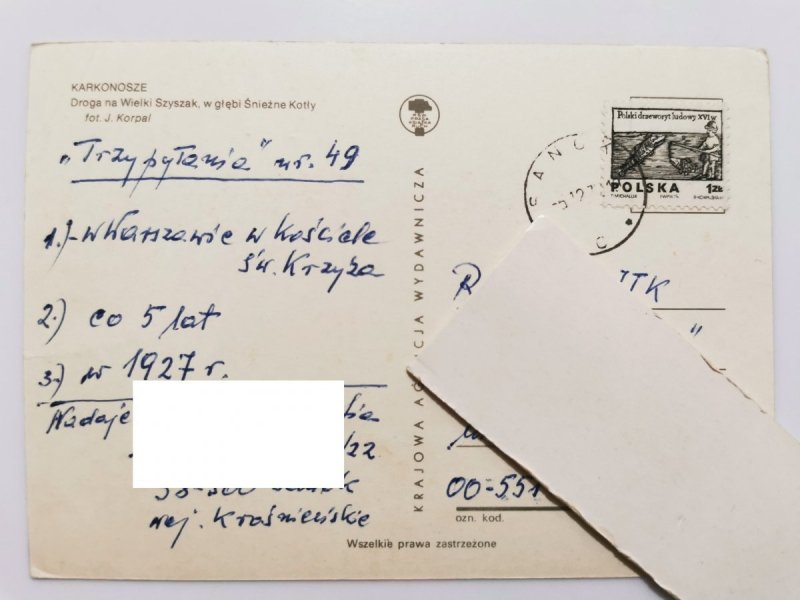 KARKONOSZE
Droga na Wielki Szyszak, w głębi Śnieżne Kotły
fot. J. Korpal
„Trzy pytania" nr. 49
1.)- w Warszawie w Kościele
św. Krzyża
2.) co 5 lat
3.) w 1927 r.
Nadaje
/22
woj. Krośnieńskie
KRAJOWA AGENCJA WYDAWNICZA
Polski drzeworyt ludowy XVI w.
POLSKA 1ZŁ
SANO
TK
"
00-551
ozn. kod.
Wszelkie prawa zastrzeżone